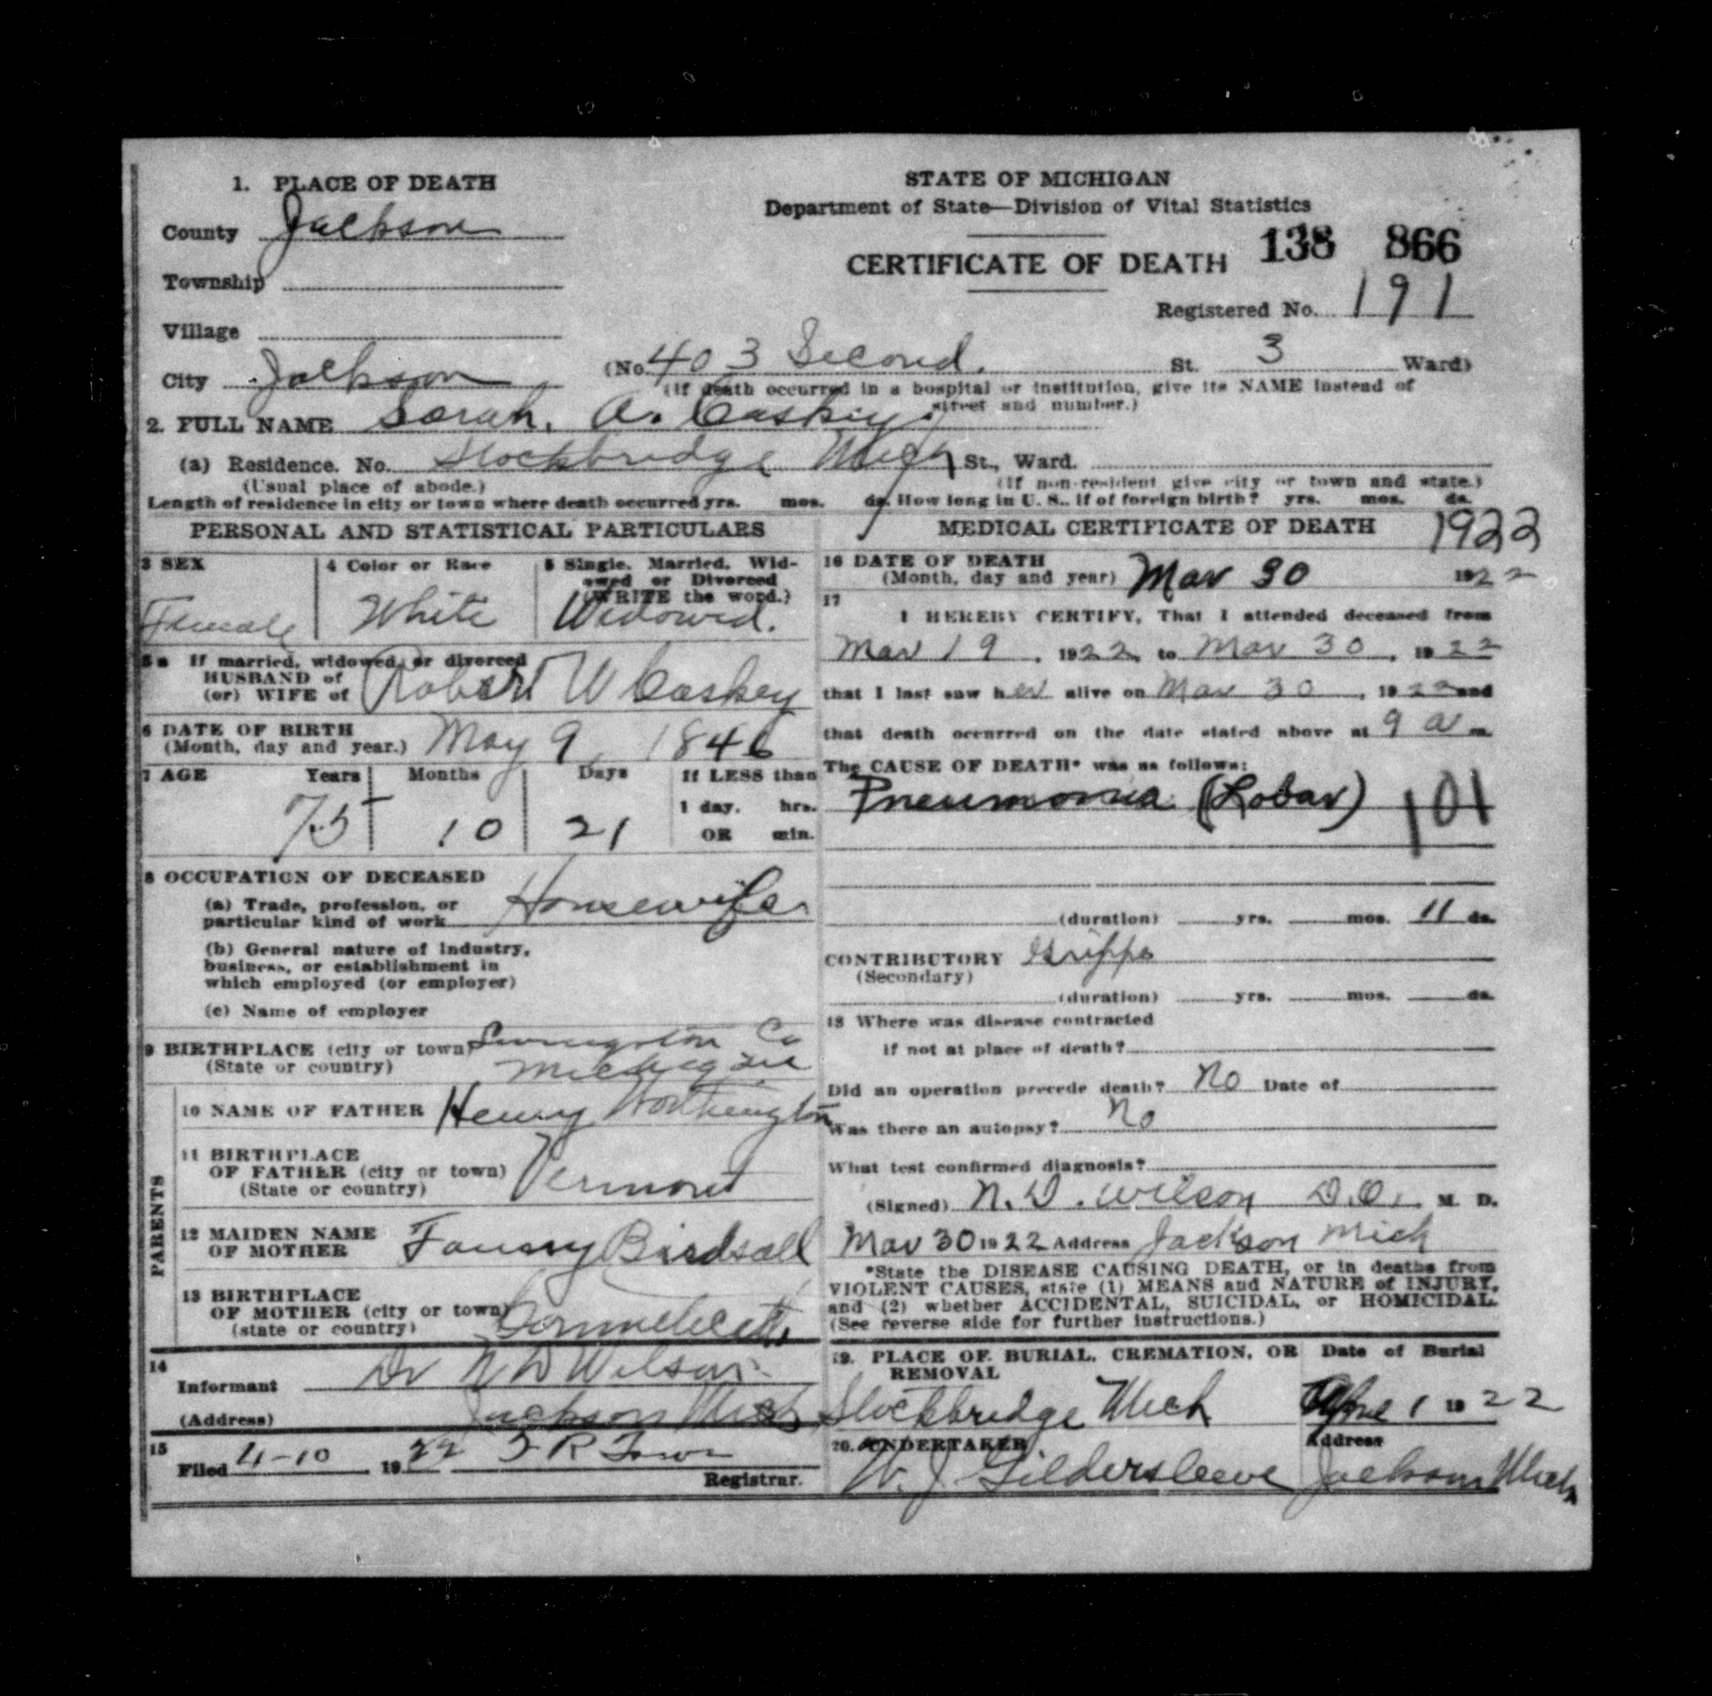 1. PLACE OF DEATH
County Jackson
Township
Village
City Jackson
STATE OF MICHIGAN
Department of State—Division of Vital Statistics
CERTIFICATE OF DEATH 138 866
Registered No. 191
(No. 403 Second. St. 3 Ward)
(If death occurred in a hospital or institution, give its NAME instead of
street and number.)
2. FULL NAME Sarah. A. Caskey.
(a) Residence. No. Stockbridge Mich St., Ward.
(Usual place of abode.)
(If non-resident give city or town and state.)
Length of residence in city or town where death occurred yrs. mos. ds. How long in U. S., if of foreign birth? yrs. mos. ds.
PERSONAL AND STATISTICAL PARTICULARS
3 SEX
Female
4 Color or Race
White
5 Single, Married, Wid-
owed or Divorced
(WRITE the word.)
Widowed.
5a If married, widowed, or divorced
HUSBAND of
(or) WIFE of Robert W Caskey
6 DATE OF BIRTH
(Month, day and year.) May 9, 1846
7 AGE Years Months Days If LESS than
1 day. hrs.
75 10 21 OR min.
8 OCCUPATION OF DECEASED
(a) Trade, profession, or
particular kind of work Housewife
(b) General nature of industry,
business, or establishment in
which employed (or employer)
(c) Name of employer
9 BIRTHPLACE (city or town) Livingston Co
(State or country) Michigan
PARENTS
10 NAME OF FATHER Henry Worthington
11 BIRTHPLACE
OF FATHER (city or town)
(State or country) Vermont
12 MAIDEN NAME
OF MOTHER Fanny Birdsall
13 BIRTHPLACE
OF MOTHER (city or town)
(state or country) Connecticut
14
Informant Dr N D Wilson.
(Address) Jackson Mich
15
Filed 4-10 1922 F R Town
Registrar.
MEDICAL CERTIFICATE OF DEATH 1922
16 DATE OF DEATH
(Month, day and year) Mar 30 1922
17
I HEREBY CERTIFY, That I attended deceased from
Mar 19, 1922, to Mar 30, 1922
that I last saw her alive on Mar 30, 1922 and
that death occurred on the date stated above at 9 a m.
The CAUSE OF DEATH* was as follows:
Pneumonia (Lobar) 101
(duration) yrs. mos. 11 ds.
CONTRIBUTORY Grippe
(Secondary)
(duration) yrs. mos. ds.
18 Where was disease contracted
if not at place of death?
Did an operation precede death? No Date of
Was there an autopsy? No
What test confirmed diagnosis?
(Signed) N. D. Wilson D.O. M. D.
Mar 30 1922 Address Jackson Mich
*State the DISEASE CAUSING DEATH, or in deaths from
VIOLENT CAUSES, state (1) MEANS and NATURE of INJURY,
and (2) whether ACCIDENTAL, SUICIDAL, or HOMICIDAL.
(See reverse side for further instructions.)
19. PLACE OF BURIAL, CREMATION, OR
REMOVAL
Stockbridge Mich
Date of Burial
April 1 1922
20. UNDERTAKER
W. J. Gildersleeve
Address
Jackson Mich